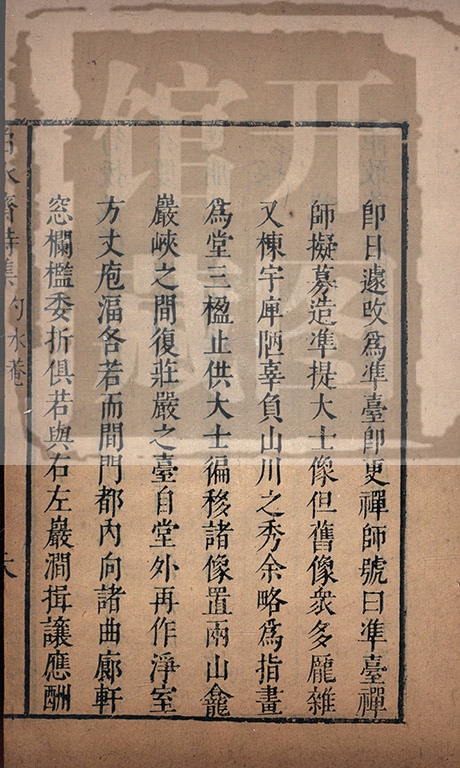 卽日遽攺爲準臺卽更禪師號曰準臺禪
師擬募造準提大士像但舊像衆多龎雜
又棟宇庳陋辜負山川之秀余略爲指畫
爲堂三楹止供大士徧移諸像置兩山龕
巖峽之間復莊嚴之臺自堂外再作淨室
方丈庖湢各若而間門都內向諸曲廊軒
窓欄檻委折俱若與右左巖澗揖讓應酬
水齋詩集 灼水菴
开图馆藏